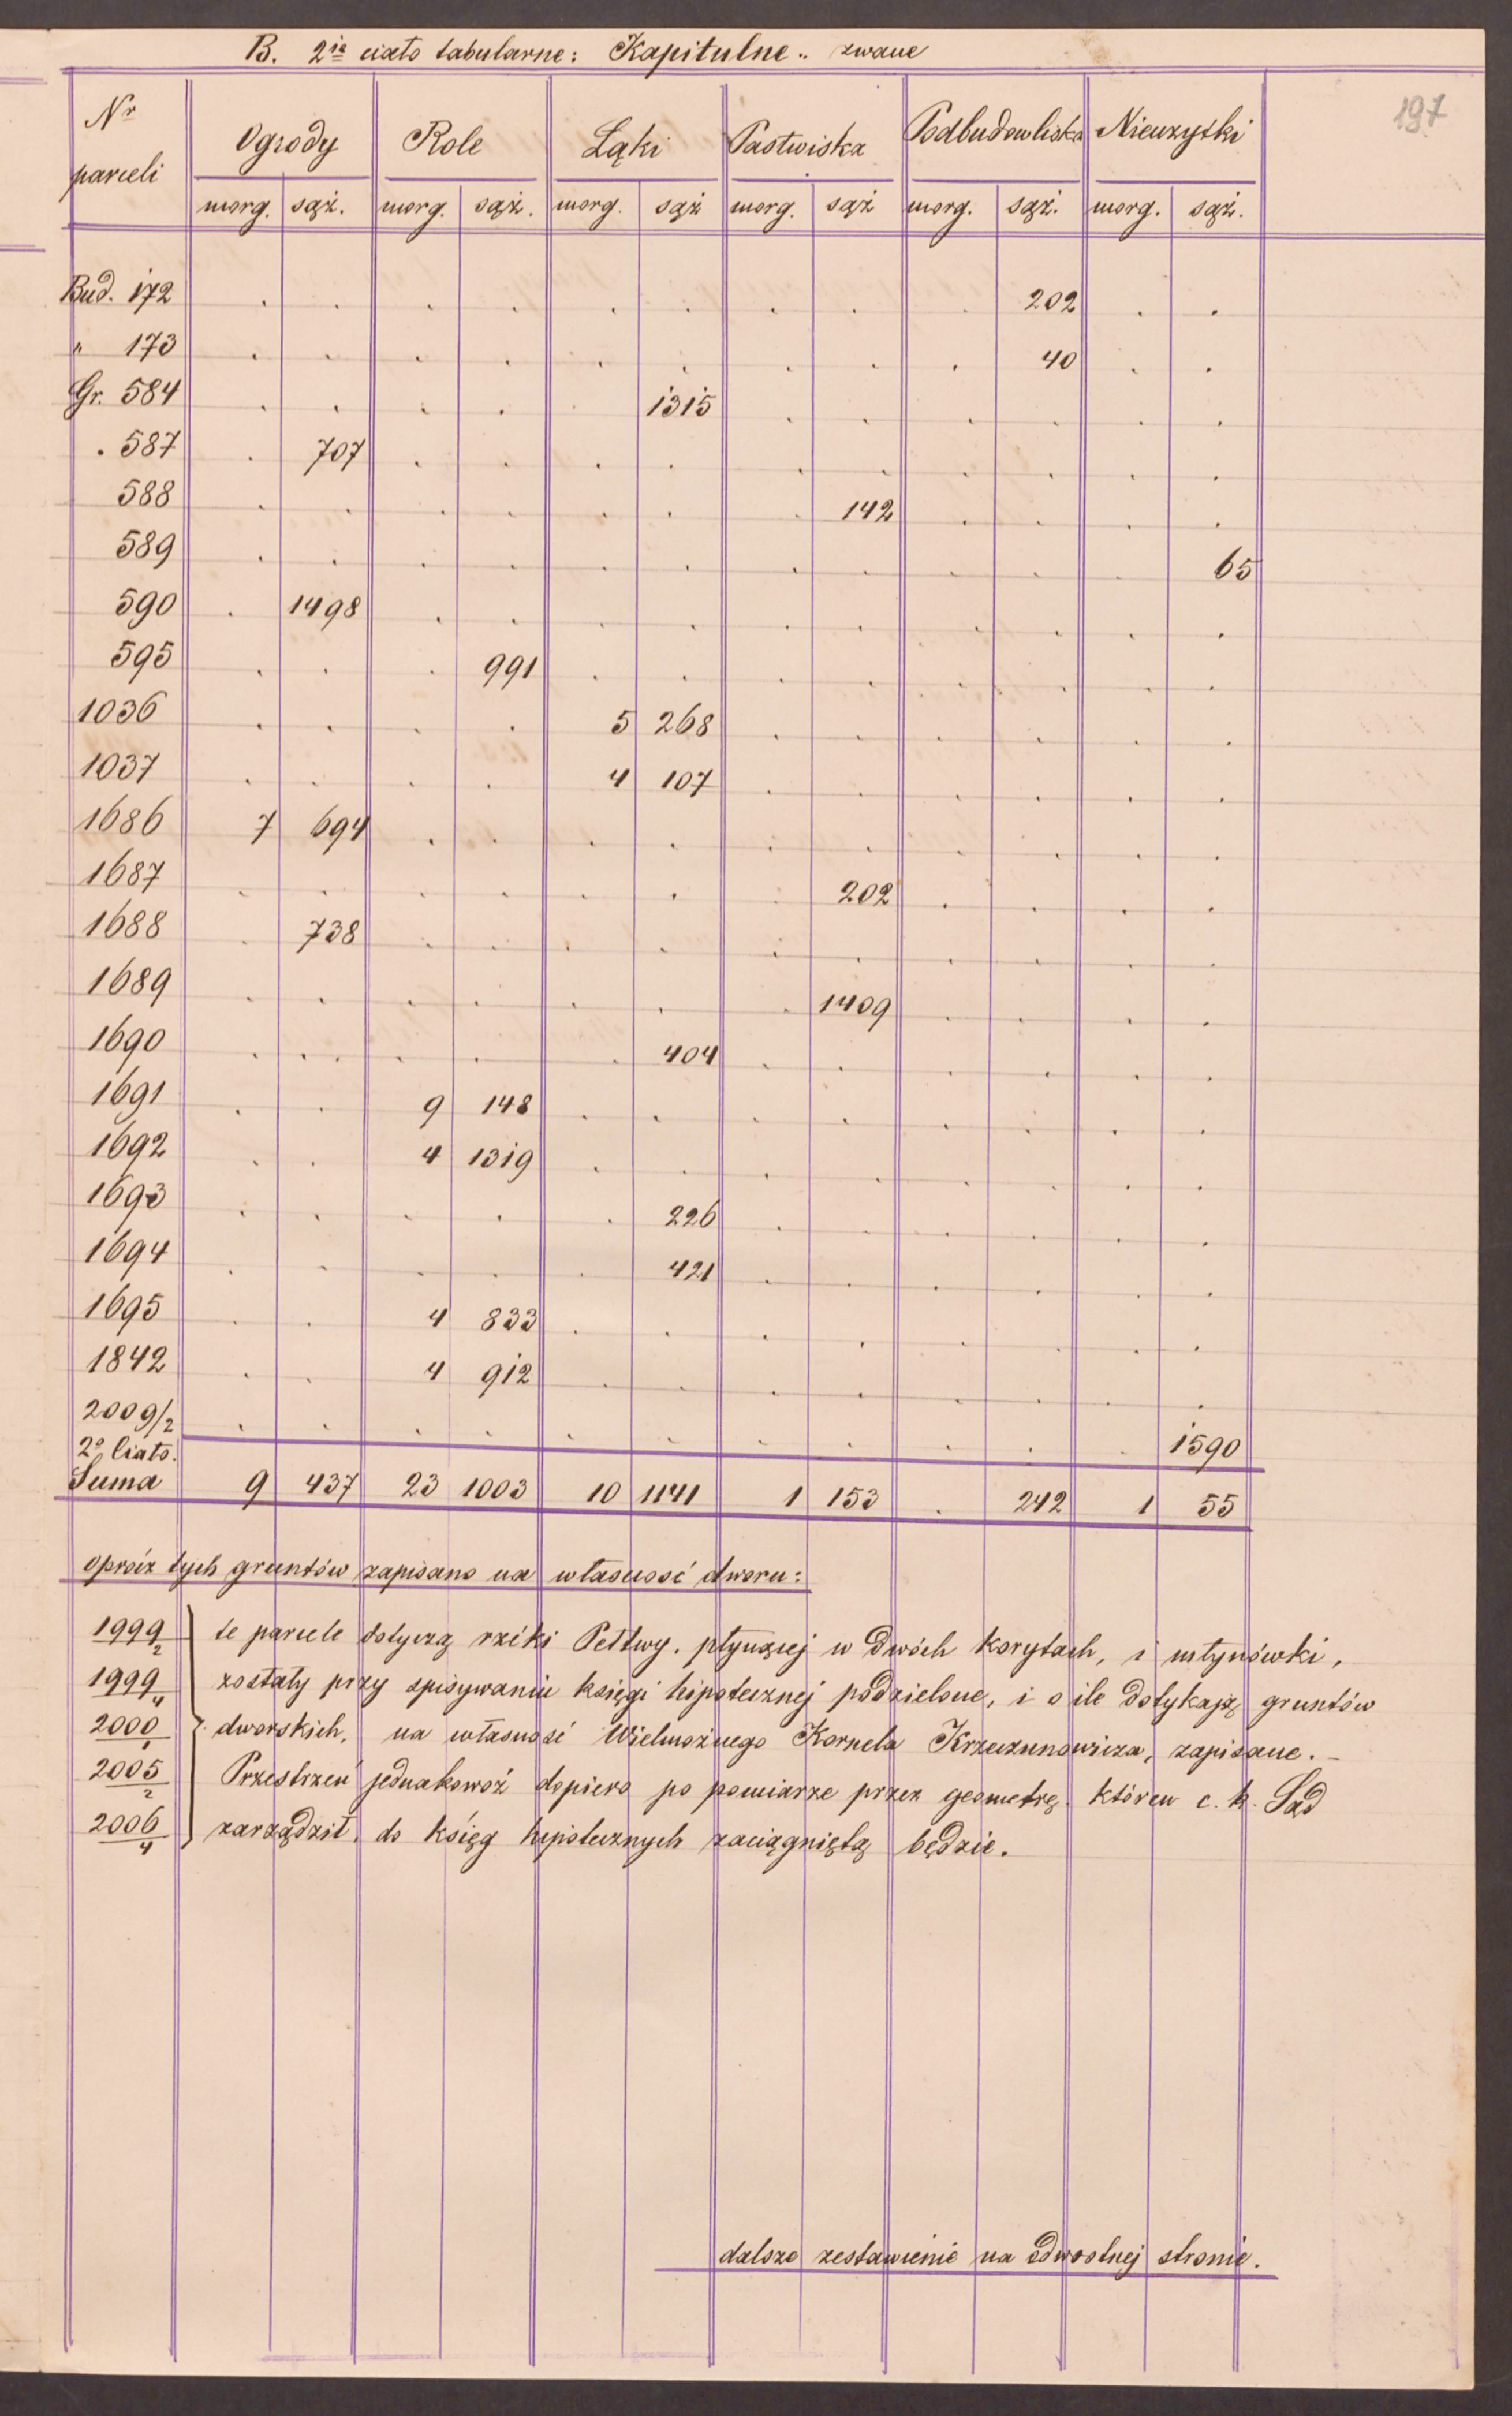 B. 2ie ciało tabularne: Kapitulne.. zwane
197
Nr parceli Ogrody Role Łąki Pastwiska Podbudowliska Nieużytki
morg. sąż. morg. sąż. morg. sąż morg. sąż morg. sąż. morg. sąż.
Bud. 172 . . . . . . . . . 202 . .
" 173 . . . . . . . . . 40 . .
Gr. 584 . . . . . 1315 . . . . . .
. 587 . 707 . . . . . . . . . .
588 . . . . . . . 142 . . . .
589 . . . . . . . . . . . 65
590 . 1498 . . . . . . . . . .
595 . . . 991 . . . . . . . .
1036 . . . . 5 268 . . . . . .
1037 . . . . 4 107 . . . . . .
1686 7 694 . . . . . . . . . .
1687 . . . . . . . 202 . . . .
1688 . 738 . . . . . . . . . .
1689 . . . . . . . 1409 . . . .
1690 . . . . . 404 . . . . . .
1691 . . 9 148 . . . . . . . .
1692 . . 4 1319 . . . . . . . .
1693 . . . . . 226 . . . . . .
1694 . . . . . 421 . . . . . .
1695 . . 4 833 . . . . . . . .
1842 . . 4 912 . . . . . . . .
2009/2 . . . . . . . . . . . 1590
2o Ciało.
Suma 9 437 23 1003 10 1141 1 153 . 242 1 55
oprócz tych gruntów zapisano na własność dworu:
1999/2 te parcele dotyczą rzeki Pełtwy. płynącej w dwóch korytach, i młynówki,
1999/4 zostały przy spisywaniu księgi hipotecznej podzielone, i o ile dotykają gruntów
2000/1 dworskich, na własność Wielmożnego Kornela Krzeczunowicza, zapisane. -
2005/2 Przestrzeń jednakowoż dopiero po pomiarze przez geometrę. któren c. k. Sąd
2006/4 zarządził, do ksiąg hipotecznych zaciągniętą będzie.
dalsze zestawienie na odwrotnej stronie.